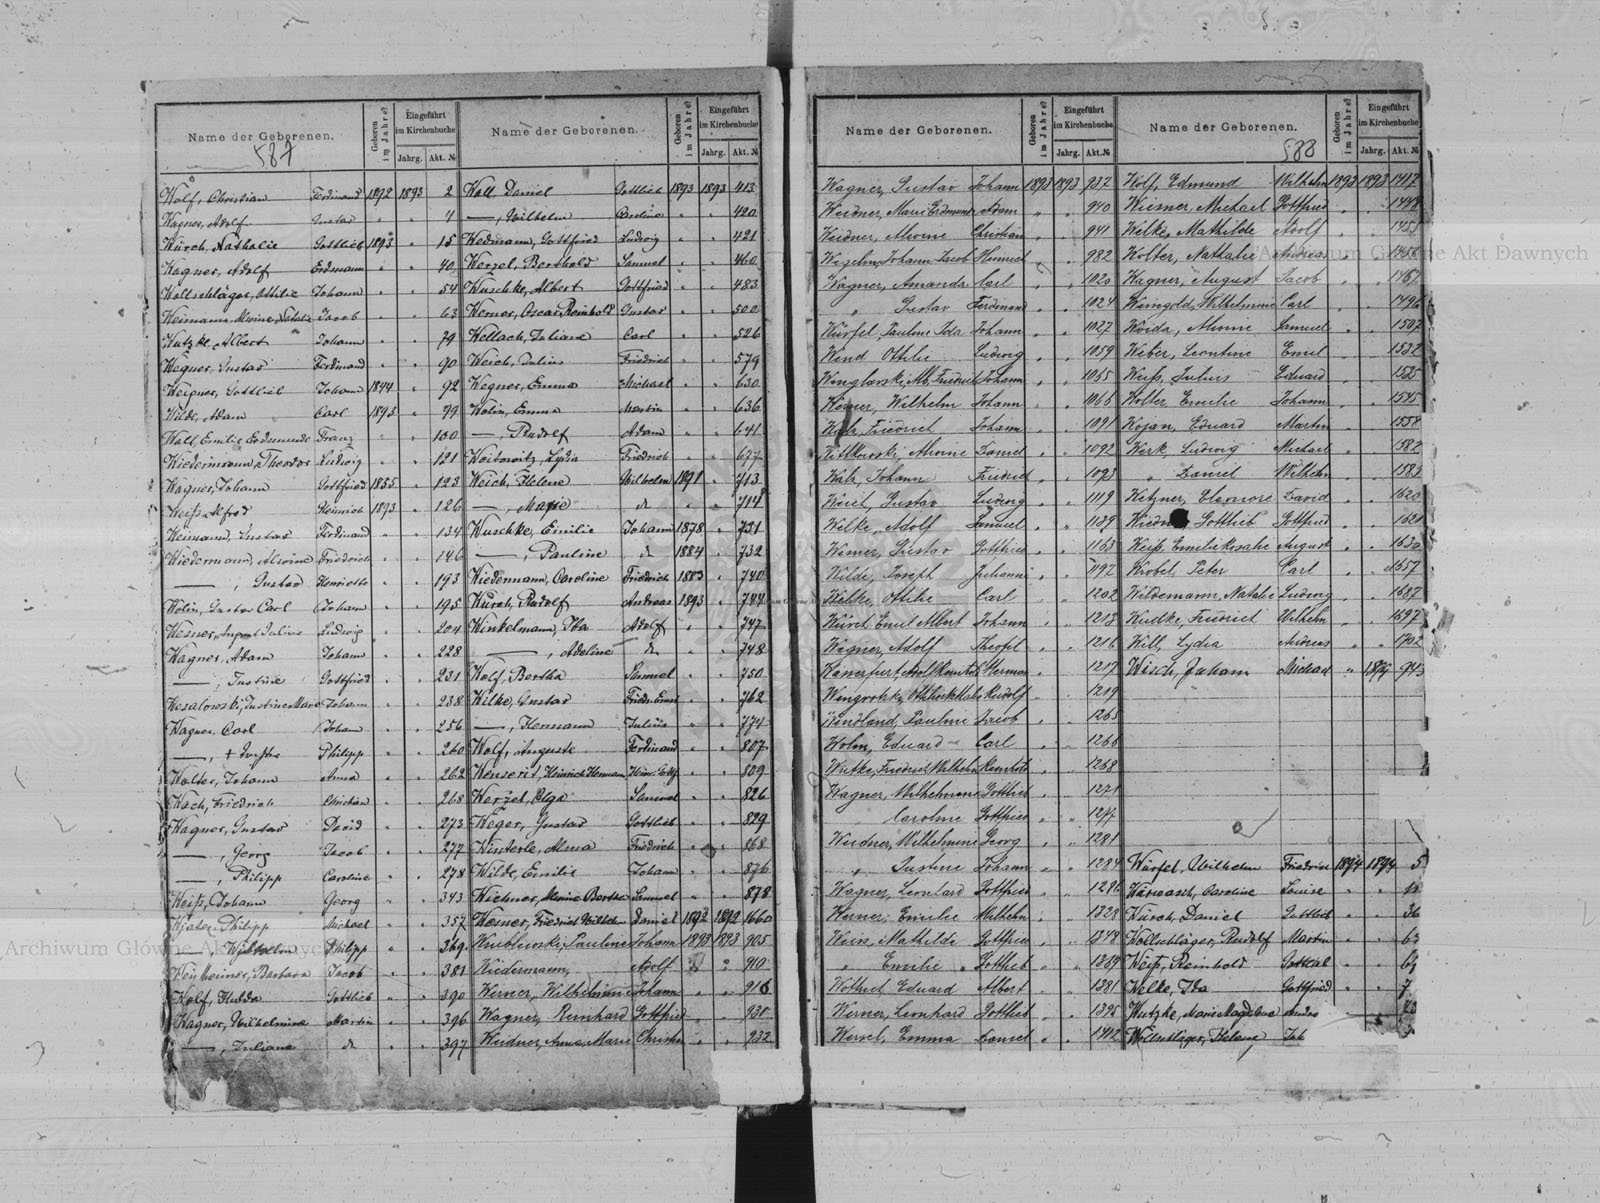 Name der Geborenen.
Geboren im Jahre?
Eingeführt im Kirchenbuche
Jahrg. Akt. №
Name der Geborenen.
Geboren im Jahre?
Eingeführt im Kirchenbuche
Jahrg. Akt. №
587
Wolf, Christian Ferdinand 1892 1893 2
Wagner, Adolf Gustav " " 4
Kürch, Nathalie Gottlieb 1893 " 15
Wagner, Adolf Erdmann " " 40
Wollschläger, Ottilie Johann " " 54
Jacob " " 63
Wutzke, Albert Johann " " 79
Wegner, Gustav Ferdinand " " 90
Gottlieb Johann 1844 " 92
Wilde, Adam Carl 1893 " 99
Wall, Emilie Franz " " 100
Wiedermann, Theodor Ludwig " " 121
Wagner, Johann Gottfried 1855 " 123
Weiß, Alfred Heinrich 1893 " 126
Weimann, Gustav Ferdinand " " 134
Wiedermann, Alwine Friedrich " " 146
—, Gustav Henriette " " 193
Wolin, Gustav Carl Johann " " 195
August Julius Ludwig " " 204
Wagner, Adam Johann " " 228
—, Justine Gottfried " " 231
Johann " " 238
Wagner, Carl Johann " " 256
Philipp " " 260
Wolter, Johann Anna " " 262
Wach, Friedrich Christian " " 268
Wagner, Gustav David " " 273
—, Georg Jacob " " 277
—, Philipp Caroline " " 278
Weiß, Johann Georg " " 343
Philipp Michael " " 357
—, Wilhelm Philipp " " 369
Barbara Jacob " " 381
Wolf, Hulda Gottlieb " " 390
Wagner, Wilhelmine Martin " " 396
—, Juliane do " " 397
Wall, Daniel Gottlieb 1893 1893 413
—, Wilhelm Caroline " " 420
Wedmann, Gottfried Ludwig " " 421
Wenzel, Berthold Samuel " " 460
Wuschke, Albert Gottfried " " 483
Werner, Oscar Reinhold Gustav " " 500
Wollach, Juliane Carl " " 526
Weich, Julius Friedrich " " 579
Wegner, Emma Michael " " 630
Wolin, Emma Martin " " 636
—, Rudolf Adam " " 641
Woitowitz, Lydia Friedrich " " 677
Weich, Helene Wilhelm 1891 " 713
—, Marie do " " 714
Wuschke, Emilie Johann 1878 " 731
—, Pauline do 1884 " 732
Wiedermann, Caroline Friedrich 1883 " 740
Kursch, Rudolf Andreas 1893 " 744
Winkelmann, Ida Adolf " " 747
—, Adeline do " " 748
Wolf, Bertha Samuel " " 750
Wilke, Gustav " " 762
—, Hermann Julius " " 774
Wolf, Auguste Ferdinand " " 807
Heinrich Hermann " " 809
Wenzel, Olga Samuel " " 826
Weger, Gustav Gottlieb " " 829
Winterle, Alma Friedrich " " 868
Wilde, Emilie Johann " " 876
Bertha Samuel " " 878
Friedrich Wilhelm Daniel 1892 1892 1660
Pauline Johann 1893 1893 905
Wiedermann, Adolf " " 910
Werner, Wilhelmine Johann " " 916
Wagner, Reinhard Gottfried " " 931
Weidner, Anna Marie Christian " " 932
Name der Geborenen.
Geboren im Jahre?
Eingeführt im Kirchenbuche
Jahrg. Akt. №
Name der Geborenen.
Geboren im Jahre?
Eingeführt im Kirchenbuche
Jahrg. Akt. №
588
Wagner, Gustav Johann 1893 1893 937
Weidner, Marie Adam " " 940
Weidner, Alwine Christian " " 941
Johann Jacob Heinrich " " 982
Wagner, Amanda Carl " " 1020
" Gustav Ferdinand " " 1024
Würfel, Pauline Ida Johann " " 1027
Wend Ottilie Ludwig " " 1059
Johann " " 1065
Wilhelm Johann " " 1066
Walz, Friedrich Johann " " 1091
Wittkowski, Alwine Daniel " " 1092
Walz, Johann Friedrich " " 1093
Gustav Ludwig " " 1119
Wilke, Adolf Samuel " " 1139
Gustav Gottfried " " 1163
Wilde, Joseph Julianna " " 1192
Wilke, Ottilie Carl " " 1202
Emil Albert Johann " " 1213
Wegner, Adolf " " 1216
Herman " " 1217
Rudolf " 1219
Wendland, Pauline Jacob " " 1265
Wolm, Eduard Carl " " 1266
Friedrich Wilhelm Reinhold " " 1268
Wagner, Wilhelmine Gottlieb " " 1271
Caroline Gottfried " " 1277
Weidner, Wilhelmine Georg " " 1281
" Justine Johann " " 1284
Wagner, Leonhard Gottfried " " 1286
Werner, Emilie Wilhelm " " 1328
Weiss, Mathilde Gottfried " " 1348
" Emilie Gottlieb " " 1369
Eduard Albert " " 1381
Werner, Leonhard Gottlieb " " 1395
Emma Daniel " " 1412
Wolf, Edmund Wilhelm 1893 1893 1417
Michael Gottfried " " 1448
Wilke, Mathilde Adolf " " 1453
Wolter, Nathalie Andreas " " 1456
Wagner, August Jacob " " 1467
Wilhelmine Carl " " 1496
Alwine Samuel " " 1507
Weber, Leontine Emil " " 1532
Weiß, Julius Eduard " " 1535
Wolter, Emilie Johann " " 1545
Eduard Martin " " 1558
Werk, Ludwig Michael " " 1582
" Daniel Wilhelm " " 1583
Eleonore David " " 1620
Gottlieb Gottfried " " 1621
Weiß, Emilie Rosalie August " " 1630
Wrobel, Peter Carl " " 1657
Wildemann, Natalie Ludwig " " 1687
Friedrich Wilhelm " " 1697
Will, Lydia Andreas " " 1702
Wisch, Johann Michael " 1894 943
Würfel, Wilhelm Friedrich 1894 1894 5
Caroline Louise " "
Wursch, Daniel Gottlieb " " 36
Wollschläger, Rudolf Martin " " 63
Weiß, Reinhold " "
Welke, Ida Gottfried " " 7
Wutzke, Marie Magdalene
Wollschläger, Helene
Archiwum Główne Akt Dawnych
Archiwum Główne Akt Dawnych